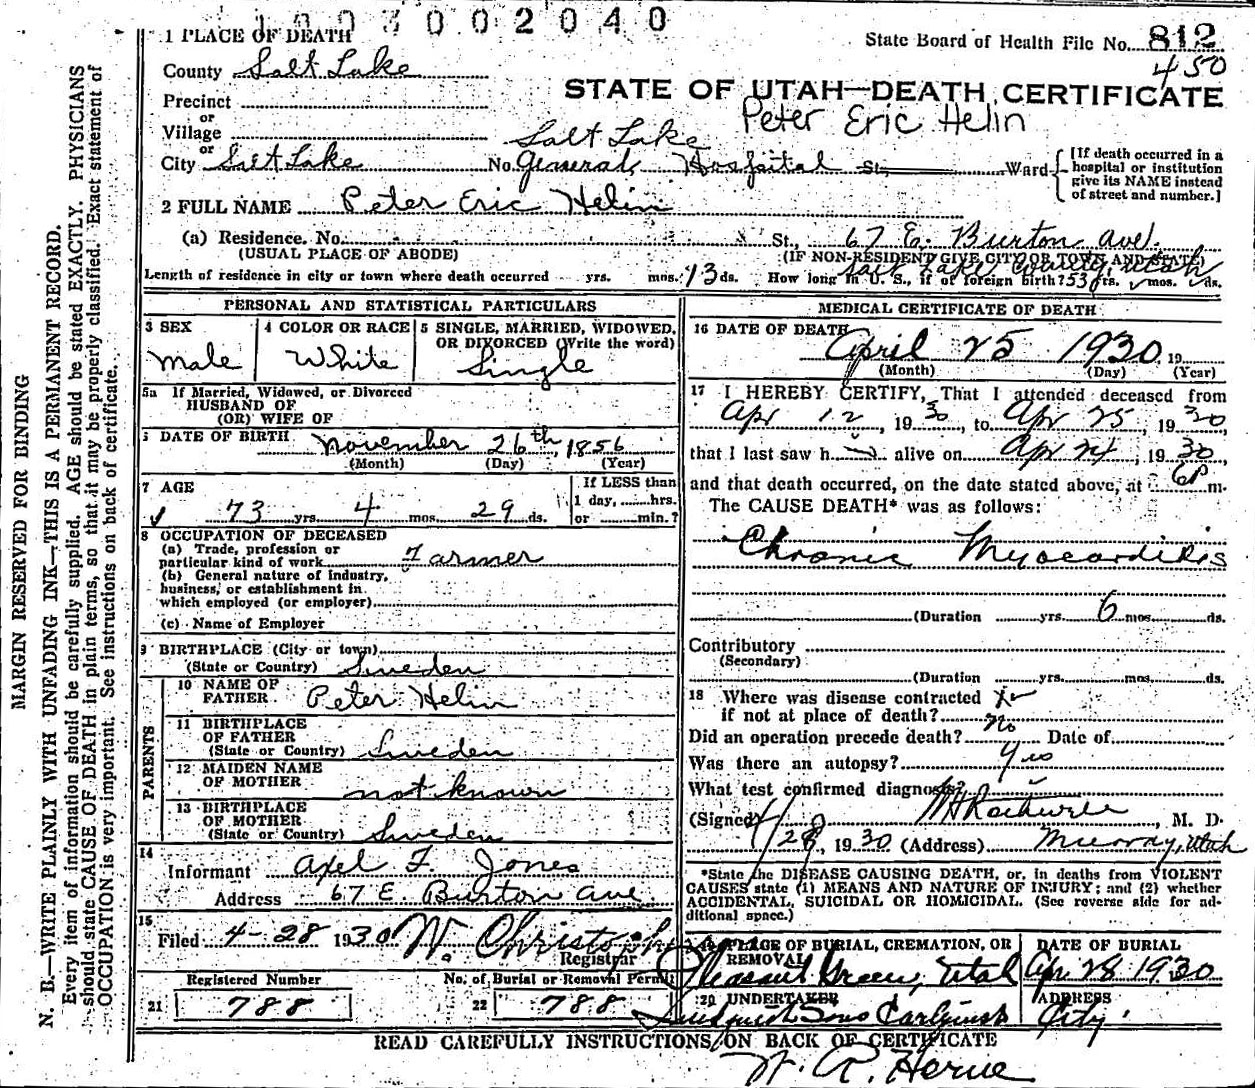 1003002040
1 PLACE OF DEATH
State Board of Health File No. 812
450
County Salt Lake
STATE OF UTAH—DEATH CERTIFICATE
Precinct
or
Peter Eric Helin
Village
or
City Salt Lake No. Salt Lake General Hospital St., Ward
[If death occurred in a
hospital or institution
give its NAME instead
of street and number.]
2 FULL NAME Peter Eric Helin
(a) Residence. No. St., 67 E. Burton Ave.
(USUAL PLACE OF ABODE) (IF NON-RESIDENT GIVE CITY OR TOWN AND STATE)
Salt Lake County, Utah
Length of residence in city or town where death occurred yrs. mos. 13 ds. How long in U. S., if of foreign birth? 53 yrs. mos. ds.
PERSONAL AND STATISTICAL PARTICULARS
3 SEX
Male
4 COLOR OR RACE
White
5 SINGLE, MARRIED, WIDOWED,
OR DIVORCED (Write the word)
Single
5a If Married, Widowed, or Divorced
HUSBAND OF
(OR) WIFE OF
6 DATE OF BIRTH November 26th, 1856
(Month) (Day) (Year)
7 AGE
73 yrs. 4 mos. 29 ds.
If LESS than
1 day, hrs.
or min.?
8 OCCUPATION OF DECEASED
(a) Trade, profession or
particular kind of work Farmer
(b) General nature of industry,
business, or establishment in
which employed (or employer)
(c) Name of Employer
9 BIRTHPLACE (City or town)
(State or Country) Sweden
PARENTS
10 NAME OF
FATHER Peter Helin
11 BIRTHPLACE
OF FATHER
(State or Country) Sweden
12 MAIDEN NAME
OF MOTHER not known
13 BIRTHPLACE
OF MOTHER
(State or Country) Sweden
14
Informant Axel F. Jones
Address 67 E. Burton Ave
15
Filed 4-28 1930 W. Christoph
Registrar
Registered Number
21 788
No. of Burial or Removal Permit
22 788
MEDICAL CERTIFICATE OF DEATH
16 DATE OF DEATH
April 25 1930, 19
(Month) (Day) (Year)
17 I HEREBY CERTIFY, That I attended deceased from
Apr 12, 1930, to Apr 25, 1930,
that I last saw h alive on Apr 24, 1930,
and that death occurred, on the date stated above, at 6P m.
The CAUSE DEATH* was as follows:
Chronic Myocarditis
(Duration yrs. 6 mos. ds.
Contributory
(Secondary)
(Duration yrs. mos. ds.
18 Where was disease contracted
if not at place of death?
Did an operation precede death? No Date of
Was there an autopsy? yes
What test confirmed diagnosis?
(Signed) , M. D.
4/28, 1930 (Address) Murray, Utah
*State the DISEASE CAUSING DEATH, or, in deaths from VIOLENT
CAUSES state (1) MEANS AND NATURE OF INJURY; and (2) whether
ACCIDENTAL, SUICIDAL OR HOMICIDAL. (See reverse side for ad-
ditional space.)
19 PLACE OF BURIAL, CREMATION, OR
REMOVAL
Pleasant Green, Utah
DATE OF BURIAL
Apr 28 1930
20 UNDERTAKER
Sons
ADDRESS
City.
READ CAREFULLY INSTRUCTIONS ON BACK OF CERTIFICATE
MARGIN RESERVED FOR BINDING
N. B.—WRITE PLAINLY WITH UNFADING INK—THIS IS A PERMANENT RECORD.
Every item of information should be carefully supplied. AGE should be stated EXACTLY. PHYSICIANS
should state CAUSE OF DEATH in plain terms, so that it may be properly classified. Exact statement of
OCCUPATION is very important. See instructions on back of certificate.